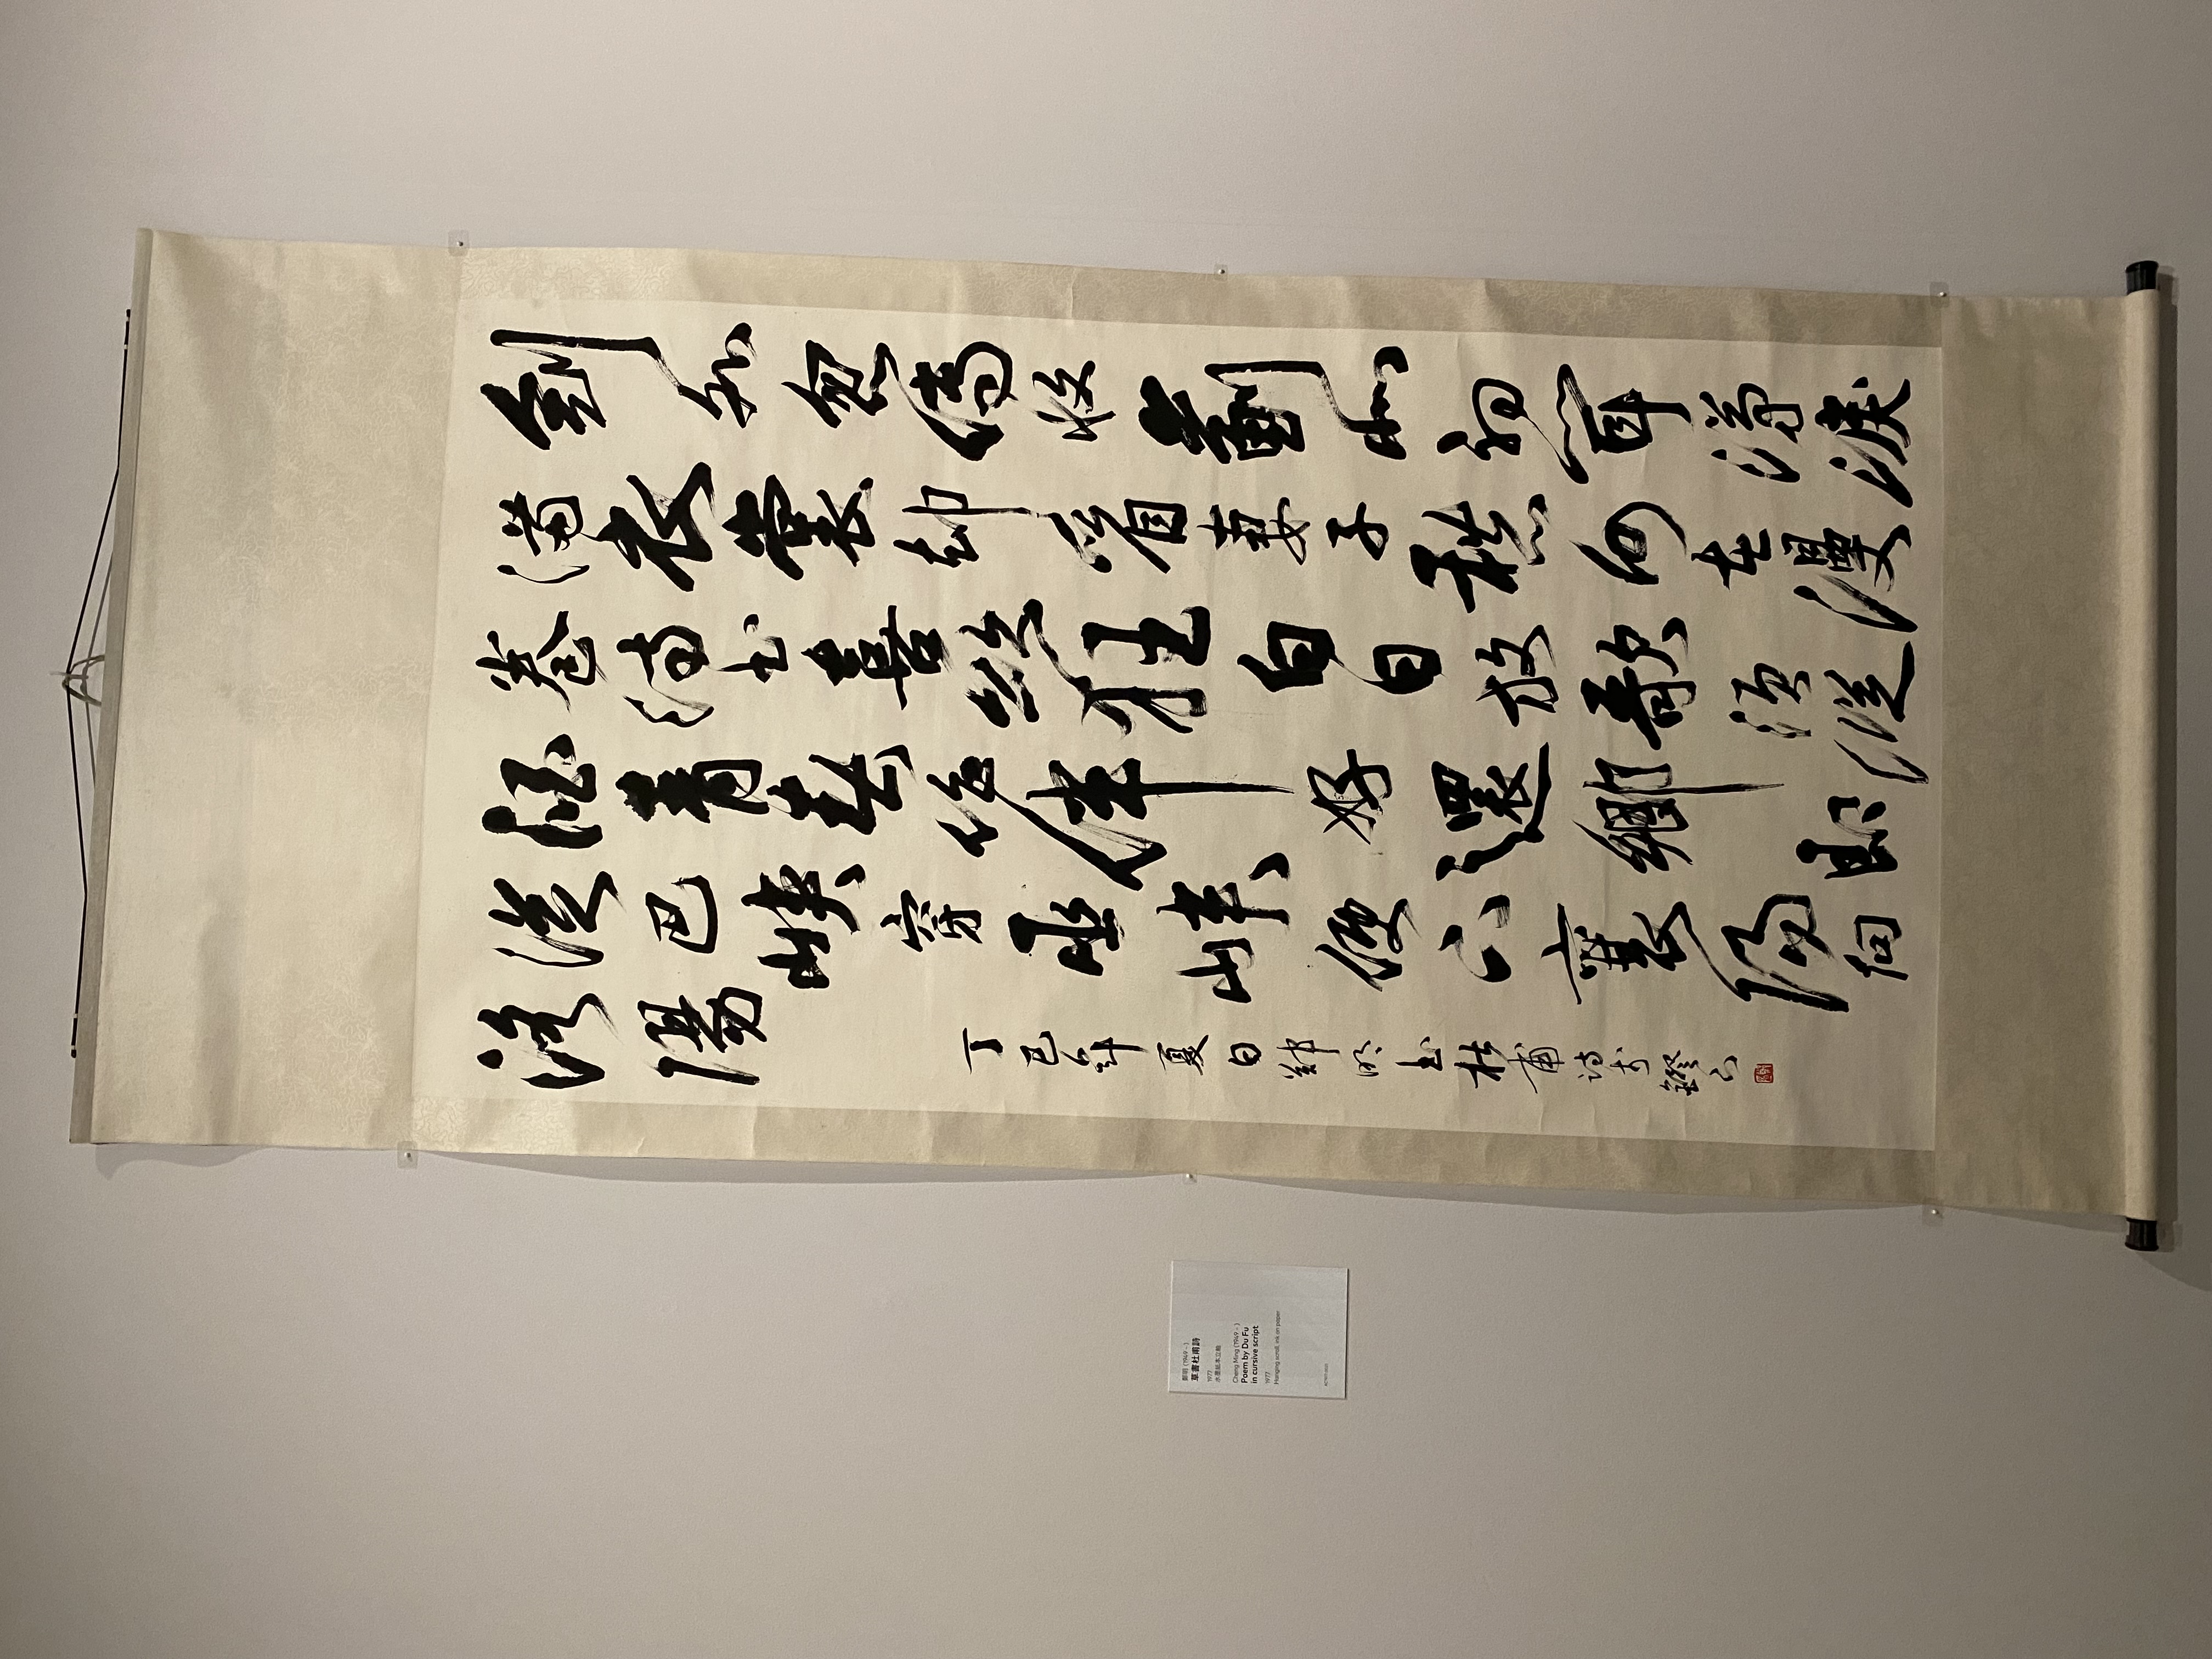 劍外忽傳收薊北初聞涕淚
滿衣裳卻看妻子愁何在漫
卷詩書喜欲狂白日放歌須縱
酒青春作伴好還鄉即
從巴峽穿巫峽便下襄陽向
洛陽
丁巳年夏日鄭明書杜甫詩於鐙下
鄭明 (1949 - )
草書杜甫詩
1977
水墨紙本立軸
Cheng Ming (1949 - )
Poem by Du Fu
in cursive script
1977
Hanging scroll, ink on paper